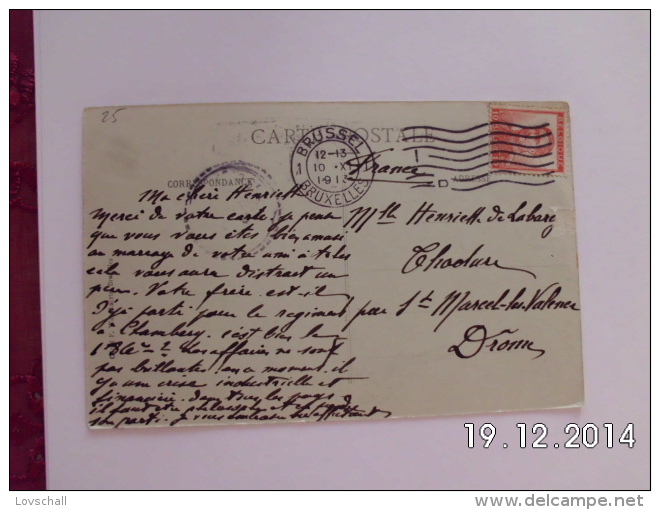 25
CARTE POSTALE
BRUSSEL
1 12-13
10 XI
1913
BRUXELLES
BELGIQUE
France
CORRESPONDANCE
Ma chère Henriette
Merci de votre carte. je pense
que vous vous êtes bien amusé
au mariage de votre ami
cela vous aura distrait un
peu. Votre frère est-il
déjà parti pour le regiment
à Chambery. c'est bien le
Les affaires ne sont
pas brillantes en ce moment. il
y a une crise industrielle et
financière dans tous les pays
il faut être philosophe et
son parti. Je vous embrasse
Mlle Henriette de Labarey
par St Marcel-les-Valence
Drôme
19.12.2014
Lovschall
www.delcampe.net